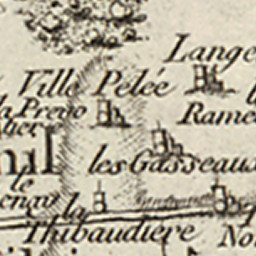 Lange
Ville Pelée
la Prevo
Rame
les Gasseaux
le
la
Thibaudiere